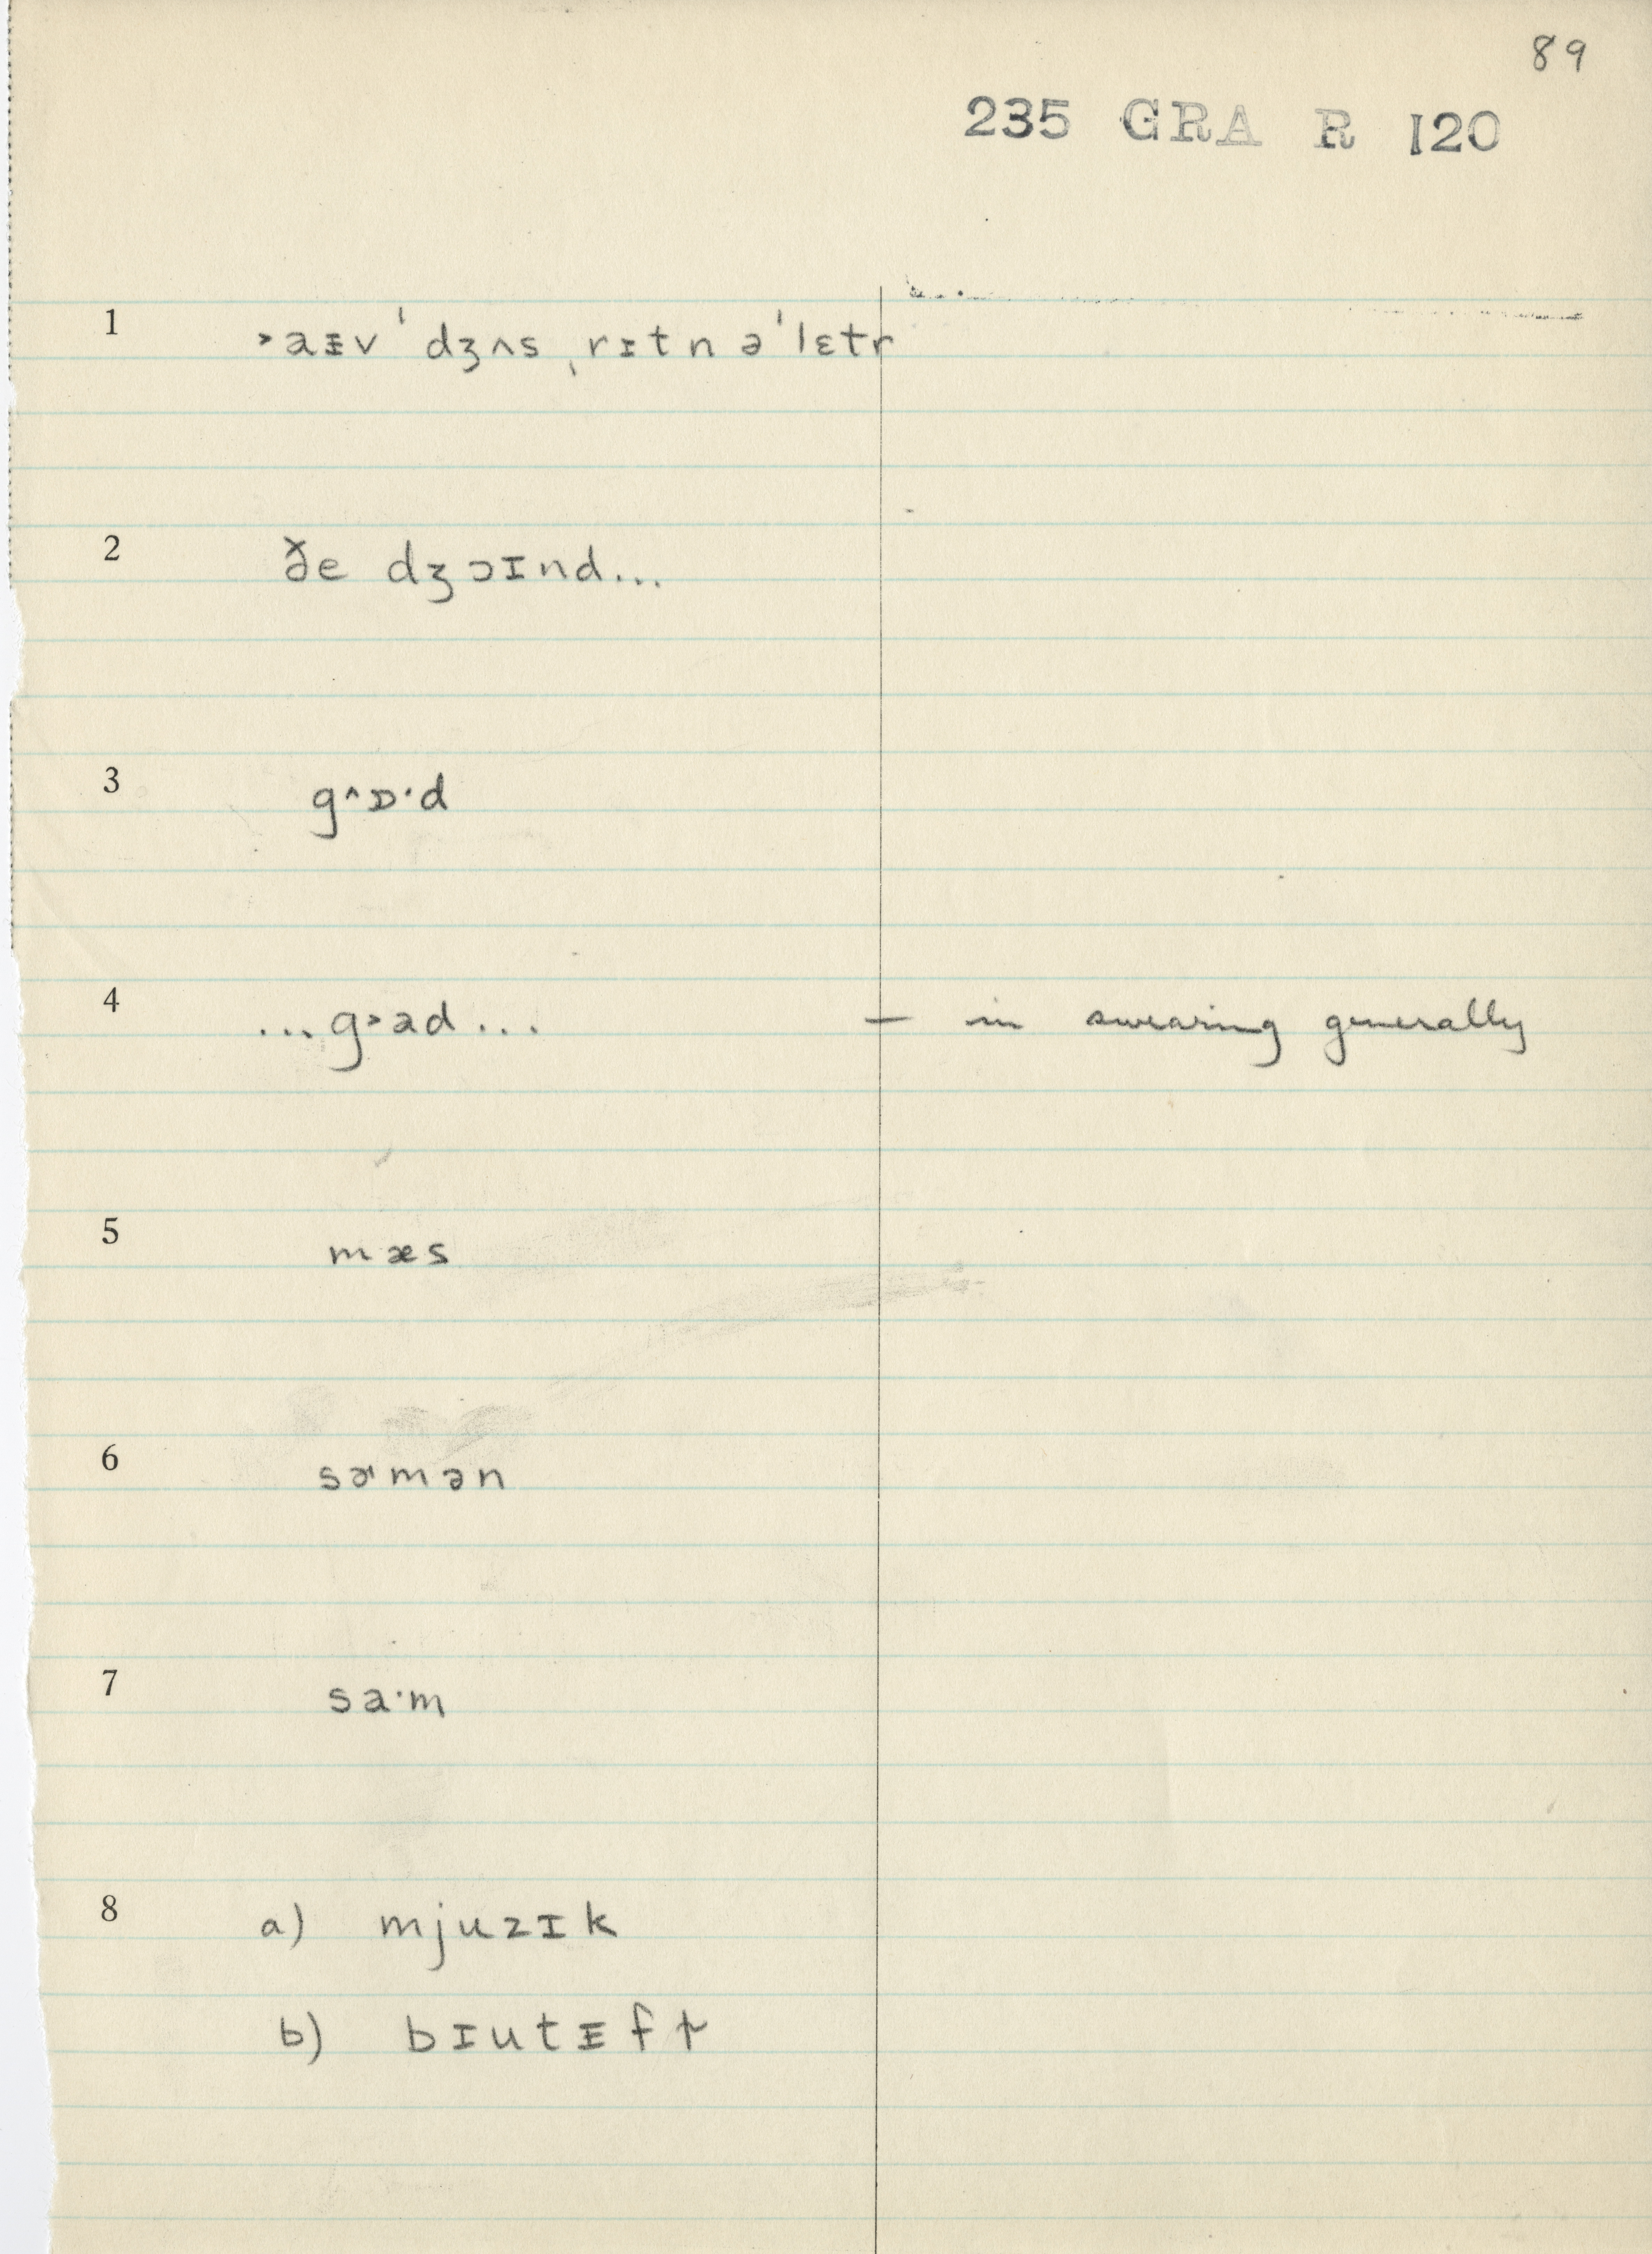 89
235 GRA R 120
1 ˃aᵻvˈdʒʌsˌrɪtn əˈlɛtr
2 ðe dʒɔɪnd...
3 g^ɒ·d
4 ...g˃ad... — in swearing generally
5 mæs
6 sɚmən
7 sa·m
8 a) mjuzɪk
b) bɪutᵻf